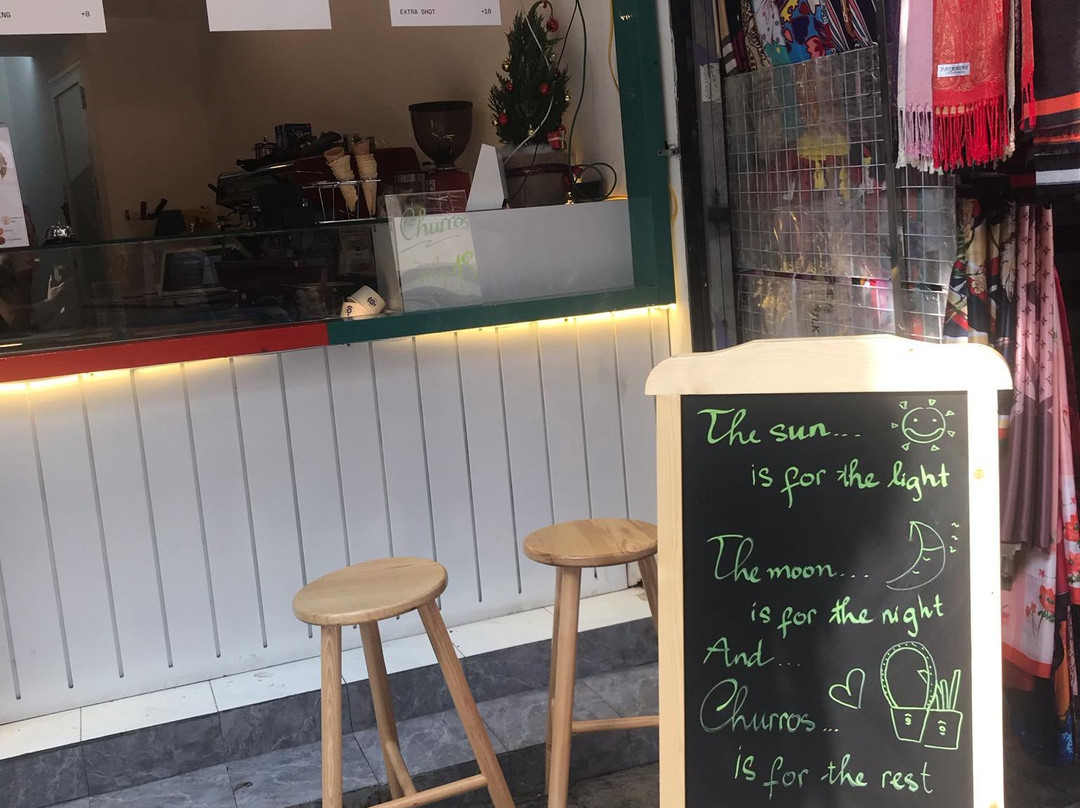 +8
EXTRA SHOT +10
Churros
The sun...
is for the light
The moon....
is for the night
And...
Churros...
is for the rest